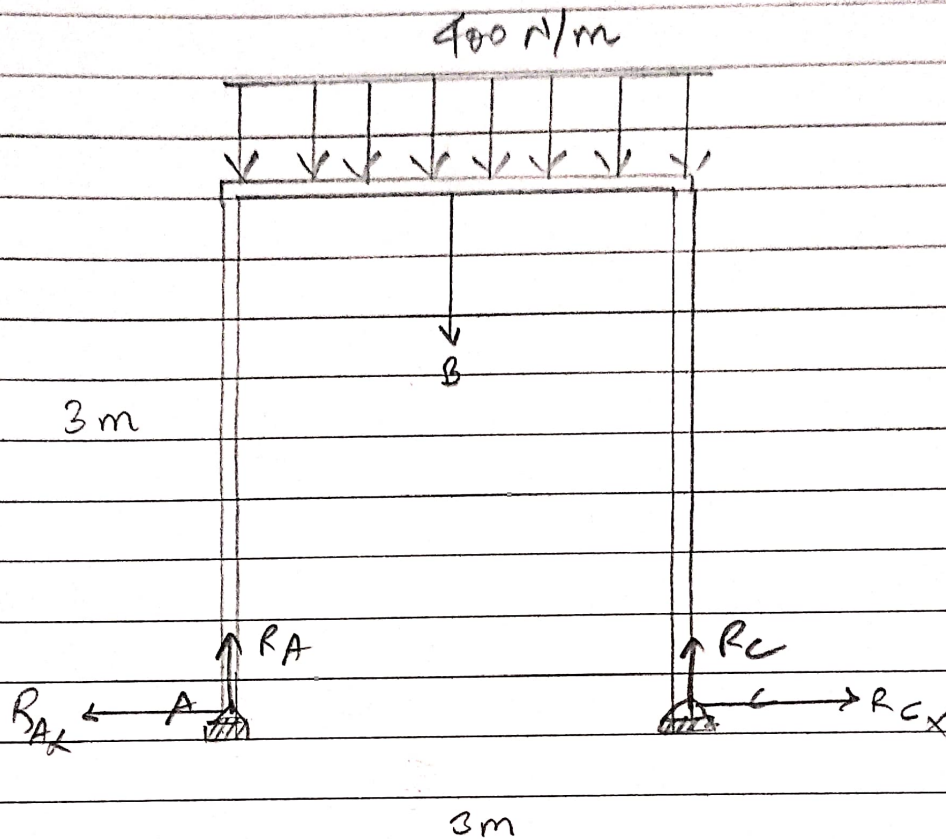 400 N/m
B
3 m
RA
RC
RAx
A
C
RCx
3m